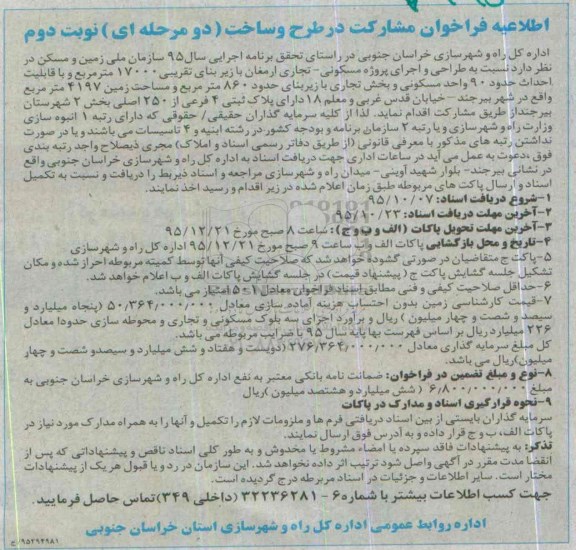 اطلاعیه فراخوان مشارکت در طرح وساخت ( دو مرحله ای ) نوبت دوم
اداره کل راه و شهرسازی خراسان جنوبی در راستای تحقق برنامه اجرایی سال۹۵ سازمان ملی زمین و مسکن در
نظر دارد نسبت به طراحی و اجرای پروژه مسکونی- تجاری ارمغان با زیر بنای تقریبی ۱۷۰۰۰ مترمربع و با قابلیت
احداث حدود ۹۰ واحد مسکونی و بخش تجاری با زیربنای حدود ۸۶۰ متر مربع و مساحت زمین ۴۱۹۷ متر مربع
واقع در شهر بیرجند – خیابان قدس غربی و معلم ۱۸ دارای پلاک ثبتی ۴ فرعی از ۲۵۰ اصلی بخش ۲ شهرستان
بیرجنداز طریق مشارکت اقدام نماید. لذا از کلیه سرمایه گذاران حقیقی/ حقوقی که دارای رتبه ۱ انبوه سازی
وزارت راه و شهرسازی و یا رتبه ۲ سازمان برنامه و بودجه کشور در رشته ابنیه و ۴ تاسیسات می باشند و یا در صورت
نداشتن رتبه های مذکور با معرفی قانونی (از طریق دفاتر رسمی اسناد و املاک) مجری ذیصلاح واجد رتبه بندی
فوق ،دعوت به عمل می آید در ساعات اداری جهت دریافت اسناد به اداره کل راه و شهرسازی خراسان جنوبی واقع
در نشانی بیرجند- بلوار شهید آوینی- میدان راه و شهرسازی مراجعه و اسناد ذیربط را دریافت و نسبت به تکمیل
اسناد و ارسال پاکت های مربوطه طبق زمان اعلام شده در زیر اقدام و رسید اخذ نمایند.
۱-شروع دریافت اسناد: ۹۵/۱۰/۰۷
۲-آخرین مهلت دریافت اسناد: ۹۵/۱۰/۲۳
۳-آخرین مهلت تحویل پاکات (الف و ب و ج): ساعت ۸ صبح مورخ ۹۵/۱۲/۲۱
۴-تاریخ و محل بازگشایی پاکات الف وب ساعت ۹ صبح مورخ ۹۵/۱۲/۲۱ اداره کل راه و شهرسازی
۵-پاکت ج متقاضیان در صورتی گشوده خواهد شد که صلاحیت کیفی آنها توسط کمیته مربوطه احراز شده و مکان
تشکیل جلسه گشایش پاکت ج ( پیشنهاد قیمت) در جلسه گشایش پاکات الف و ب اعلام خواهد شد.
۶-حداقل صلاحیت کیفی و فنی مطابق اسناد فراخوان معادل ۵۰۱ امتیاز می باشد.
۷-قیمت کارشناسی زمین بدون احتساب هزینه آماده سازی معادل ۵۰،۳۶۴،۰۰۰،۰۰۰ (پنجاه میلیارد و
سیصد و شصت و چهار میلیون ) ریال و برآورد اجرای سه بلوک مسکونی و تجاری و محوطه سازی حدودا معادل
۲۲۶ میلیارد ریال بر اساس فهرست بها پایه سال ۹۵ با ضرایب مربوطه می باشد.
کل مبلغ سرمایه گذاری معادل ۲۷۶،۳۶۴،۰۰۰،۰۰۰ (دویست و هفتاد و شش میلیارد و سیصدو شصت و چهار
میلیون)ریال می باشد.
۸-نوع و مبلغ تضمین در فراخوان: ضمانت نامه بانکی معتبر به نفع اداره کل راه و شهرسازی خراسان جنوبی به
مبلغ ۶،۸۰۰،۰۰۰،۰۰۰ ( شش میلیارد و هشتصد میلیون )ریال
۹-نحوه قرارگیری اسناد و مدارک در پاکات
سرمایه گذاران بایستی از بین اسناد دریافتی فرم ها و ملزومات لازم را تکمیل و آنها را به همراه مدارک مورد نیاز در
پاکات الف، ب و ج قرار داده و به آدرس فوق ارسال نمایند.
تذکر: به پیشنهادات فاقد سپرده یا امضاء مشروط یا مخدوش و به طور کلی اسناد ناقص و پیشنهاداتی که پس از
انقضا مدت مقرر در آگهی واصل شود ترتیب اثر داده نخواهد شد. این سازمان در رد و یا قبول هر یک از پیشنهادات
مختار است. سایر اطلاعات و جزئیات در اسناد مربوطه درج گردیده است.
جهت کسب اطلاعات بیشتر با شماره ۶ - ۳۲۲۳۶۲۸۱ (داخلی ۳۴۹)تماس حاصل فرمایید.
اداره روابط عمومی اداره کل راه و شهرسازی استان خراسان جنوبی
۹۵۲۹۴۹۸۱ ج